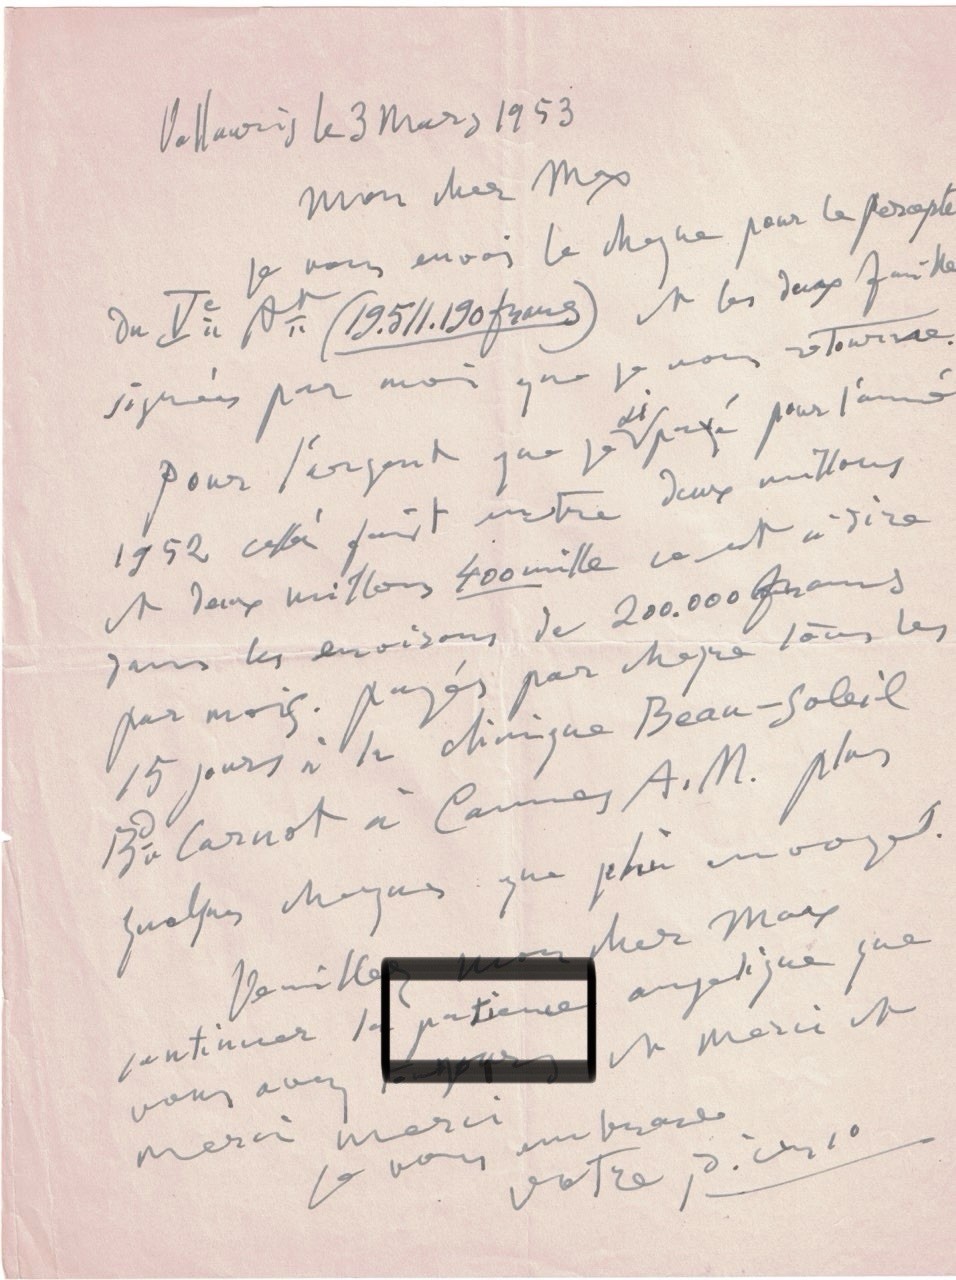 Vallauris le 3 Mars 1953
mon cher Max
je vous envois le cheque pour le percepte
du Ve At (19.511.190 francs) et les deux feuilles
signées par moi que je vous retourne.
pour l'argent que je payé pour l'anné
1952 cella fait entre deux millons
et deux millons 400 mille ce est à dire
dans les environs de 200.000 francs
par mois. payés par cheque tous les
15 jours à la clinique Beau-Soleil
Bd Carnot à Cannes A.M. plus
quelques cheques que
Veuillez mon cher Max
continuer la patience angelique que
vous avez toujours et merci et
merci merci
je vous embrasse
votre Picasso